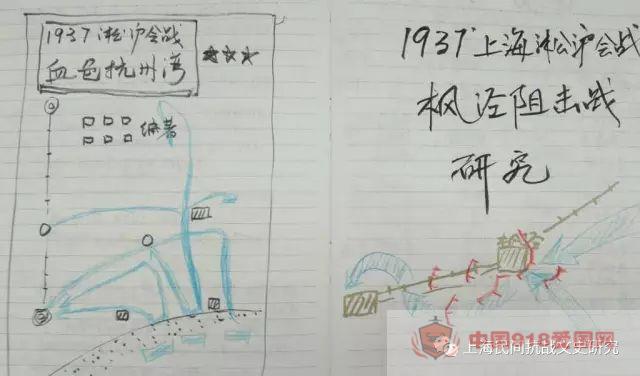 1937淞沪会战
血色杭州湾
编著
1937上海淞沪会战
枫泾阻击战
研究
枫泾
中国918爱国网
上海民间抗战文史研究